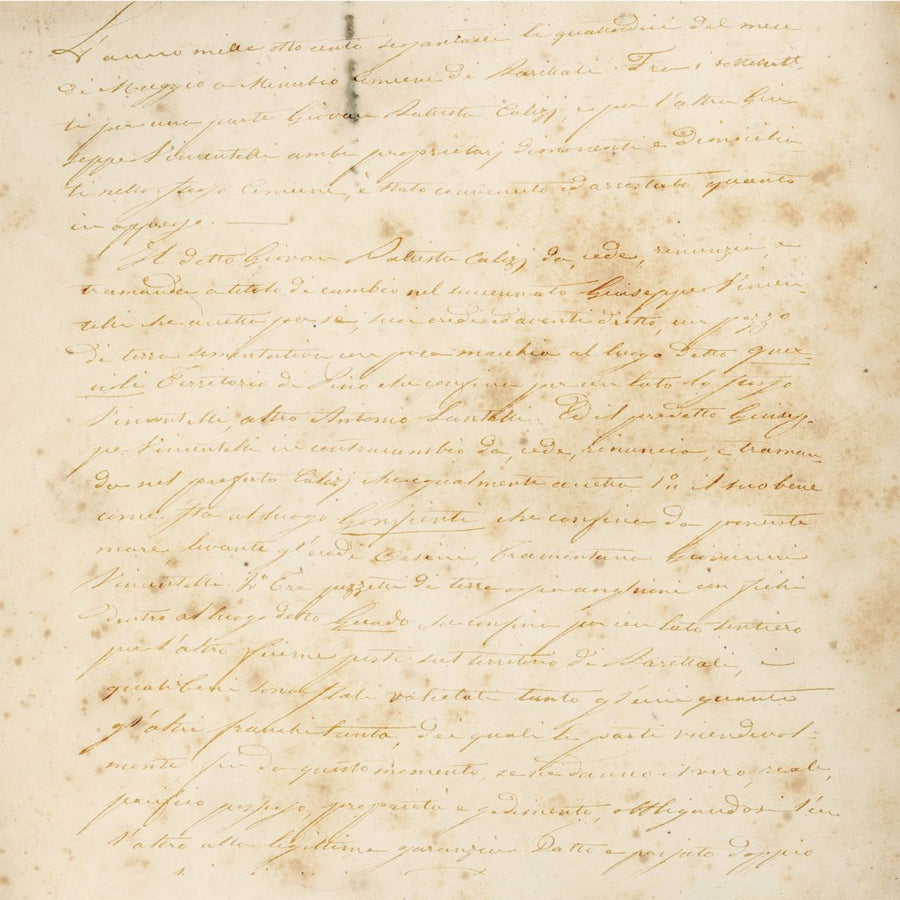 L'anno mille otto cento sessantasei li quattordici del mese
di Maggio a Minerbio Comune di Barettali. Fra i sottoscrit-
ti per una parte Giovan Battista Calizj, e per l'altra Giu-
seppe Vincentelli ambi proprietarj dimoranti e domicilia
ti nello stesso Comune, è stato convenuto ed arrestato quanto
in appresso.
Il detto Giovan Battista Calizj da, cede, rinunzia, e
tramanda a titolo di cambio nel succennato Giuseppe Vincen-
telli che accetta per se, suoi eredi ed aventi dritto, un pezzo
di terra sementativa con poca macchia al luogo detto
Territorio di Pino che confina per un lato lo stesso
Vincentelli, altro Antonio Santelli. Ed il predetto Giusep-
pe Vincentelli in contraccambio da, cede, rinuncia, e traman-
da nel prefato Calizj che egualmente accetta 1º il suo bene
come sta al luogo che confina da ponente
mare, levante gl'eredi Orsini, Tramontana Vincentelli.
2º Tre pezzetti di terra con fichi
dentro al luogo detto Guado che confina per un lato sentiero
per l'altro fiume posti sul territorio di Barettali, i
quali beni sono stati valutati tanto gl'uni quanto
gl'altri franchi trenta, dei quali le parti vicendevol-
mente fin da questo momento, se ne danno il vero, reale,
pacifico possesso, proprietà e godimento, obbligandosi l'un
l'altro alla legittima garanzia. Fatto e passato doppio